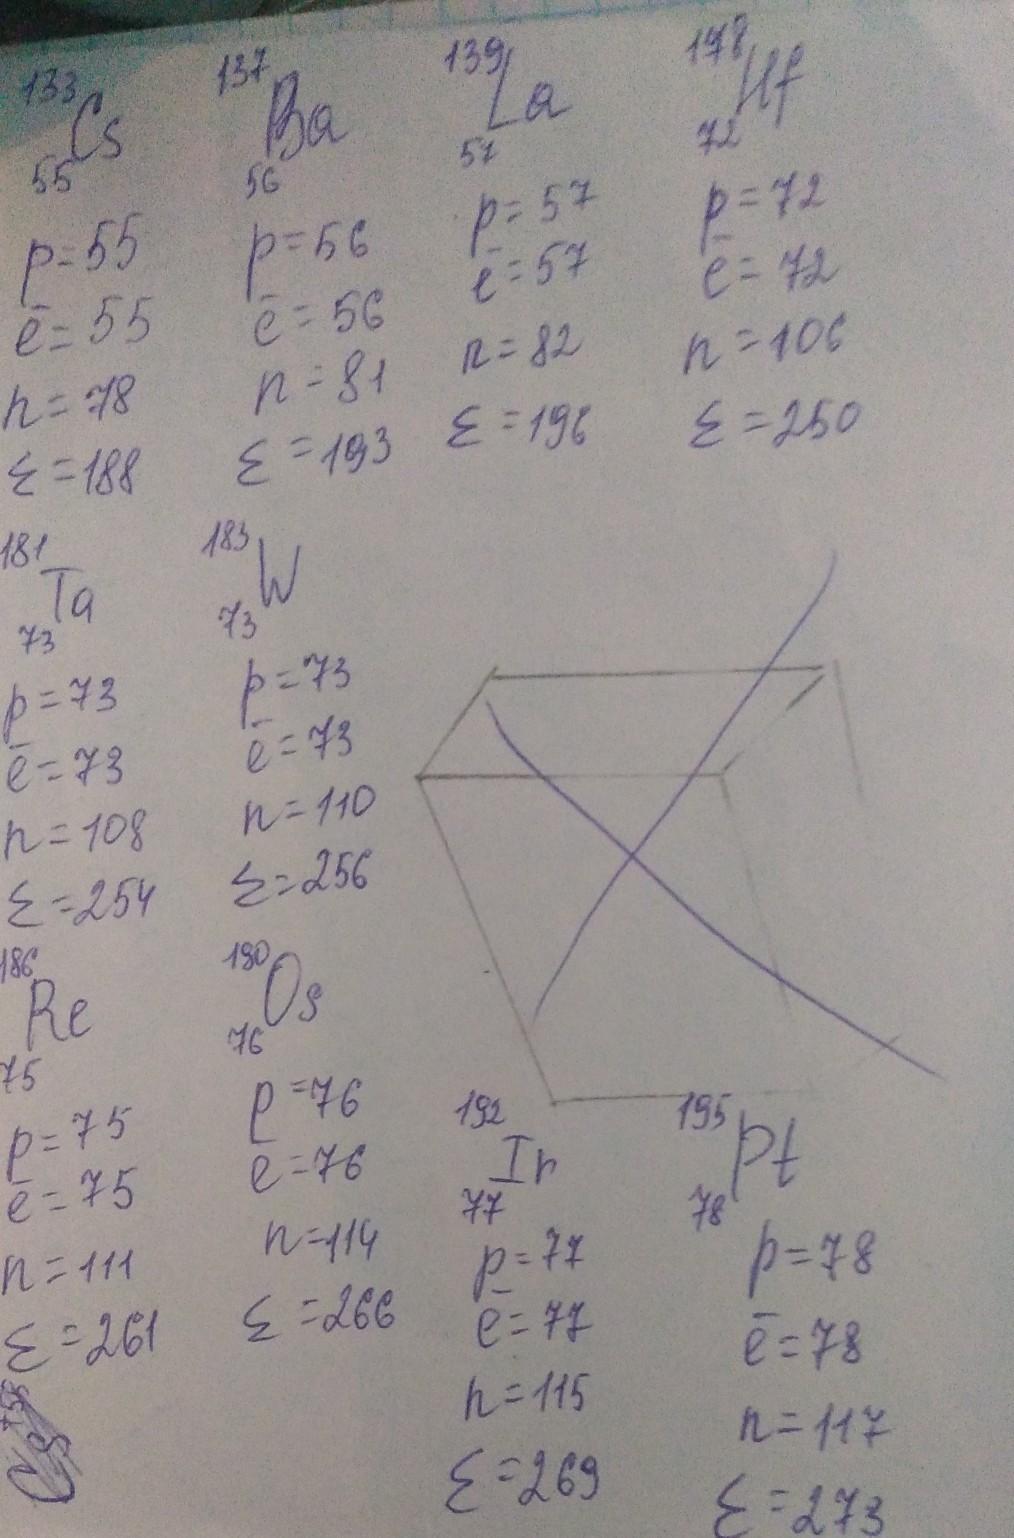 133 Cs 55
p=55
e̅=55
n=78
Σ=188
137 Ba 56
p=56
e̅=56
n=81
Σ=193
139 La 57
p=57
e̅=57
n=82
Σ=196
178 Hf 72
p=72
e̅=72
n=106
Σ=250
181 Ta 73
p=73
e̅=73
n=108
Σ=254
183 W 73
p=73
e̅=73
n=110
Σ=256
186 Re 75
p=75
e̅=75
n=111
Σ=261
190 Os 76
p=76
e̅=76
n=114
Σ=266
192 Ir 77
p=77
e̅=77
n=115
Σ=269
195 Pt 78
p=78
e̅=78
n=117
Σ=273